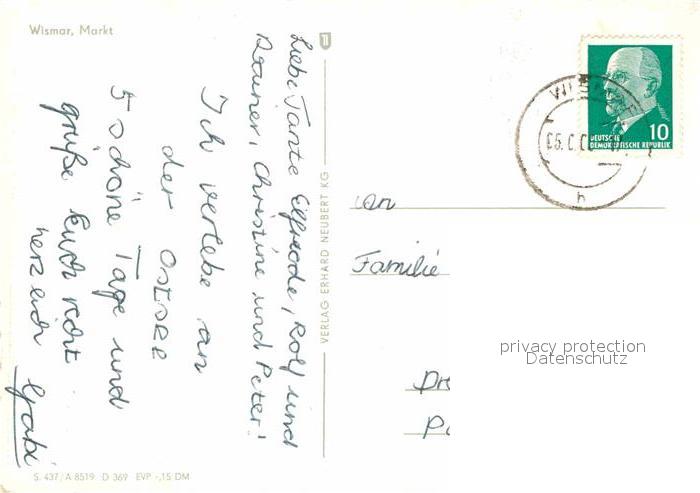 Wismar, Markt
Liebe Tante Elfriede, Rolf und
Rainer, Christine und Peter!
Ich verlebe an
der OSTSEE
5 schöne Tage und
grüße Euch recht
herzlich Gabi
VERLAG ERHARD NEUBERT KG
DEUTSCHE
DEMOKRATISCHE REPUBLIK
10
h
an
Familie
privacy protection
Datenschutz
S. 437/A 8519 D 369 EVP -,15 DM